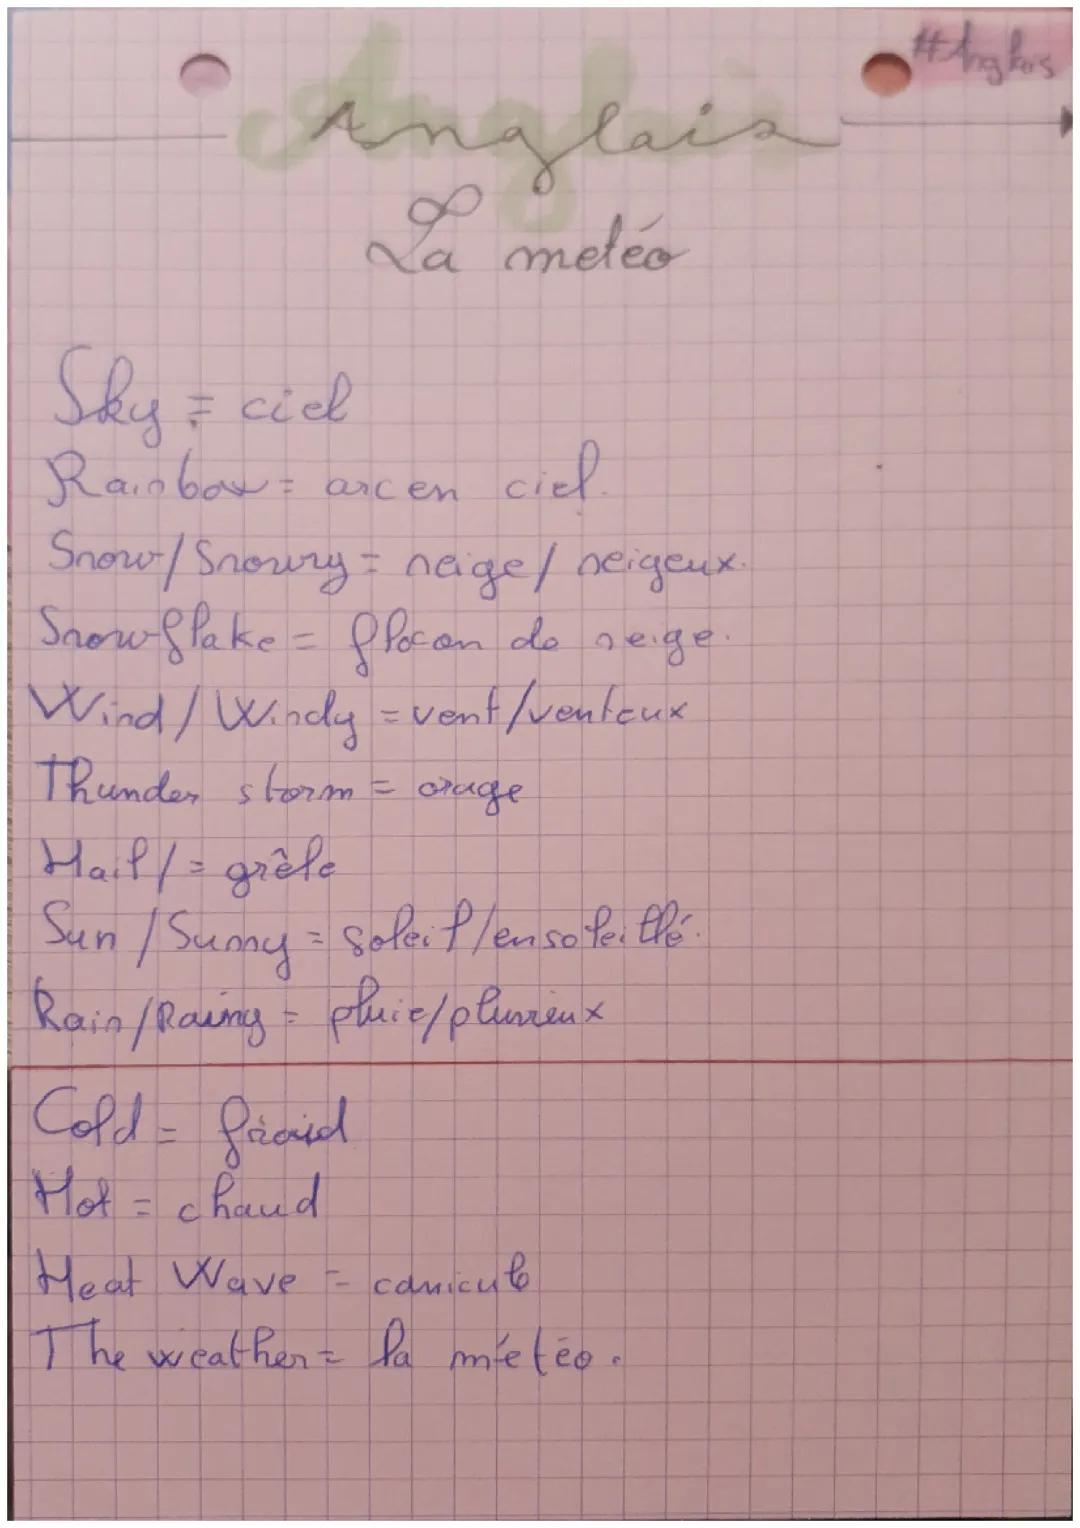 #Anglais
Anglais
La metéo
Sky = ciel
Rainbow = arc en ciel.
Snow/Snowy = neige/neigeux.
Snowflake = flocon de neige.
Wind/Windy = vent/venteux
Thunder storm = orage
Hail/= grêle
Sun/Sunny = soleil/ensoleillé.
Rain/Rainy = pluie/pluvieux
Cold = froid
Hot = chaud
Heat Wave = canicule
The weather = la météo.